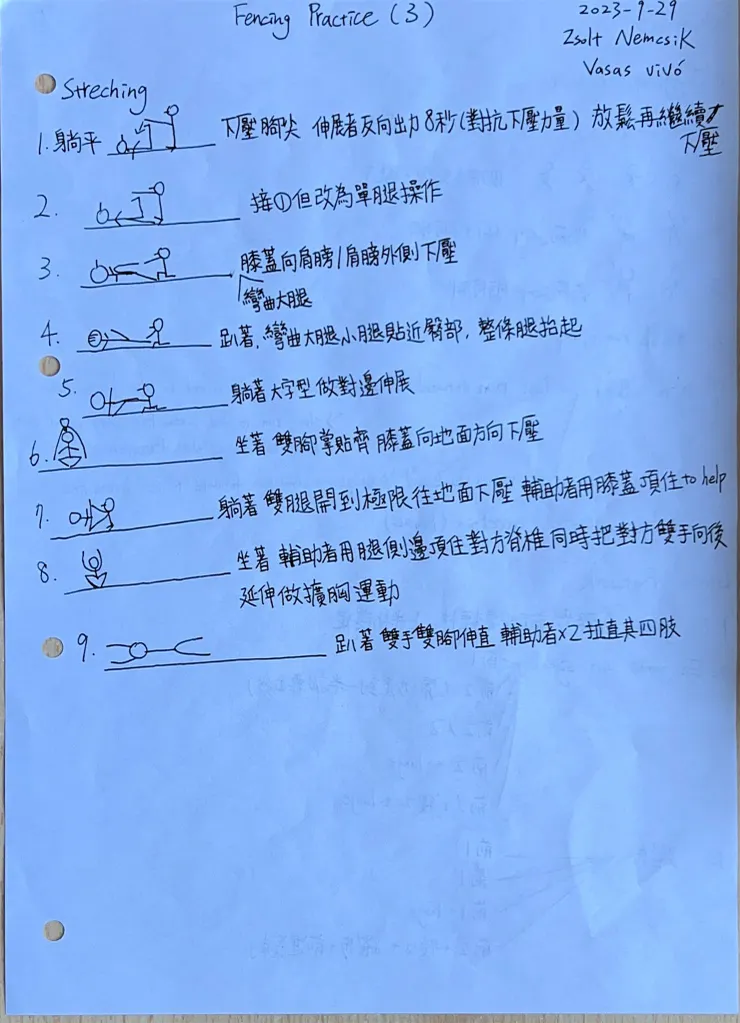 Fencing Practice (3)
2023-9-29
Zsolt Nemcsik
Vasas vivó
Streching
1. 躺平 下壓腳尖 伸展者反向出力8秒(對抗下壓力量) 放鬆再繼續
下壓
2. 接①但改為單腿操作
3. 膝蓋向肩膀/肩膀外側下壓
彎曲大腿
4. 趴著, 彎曲大腿小腿貼近臀部, 整條腿抬起
5. 躺著大字型做對邊伸展
6. 坐著 雙腳掌貼齊 膝蓋向地面方向下壓
7. 躺著 雙腿開到極限往地面下壓 輔助者用膝蓋頂住to help
8. 坐著 輔助者用腿側邊頂住對方脊椎同時把對方雙手向後
延伸做擴胸運動
9. 趴著 雙手雙腳伸直 輔助者x2拉直其四肢